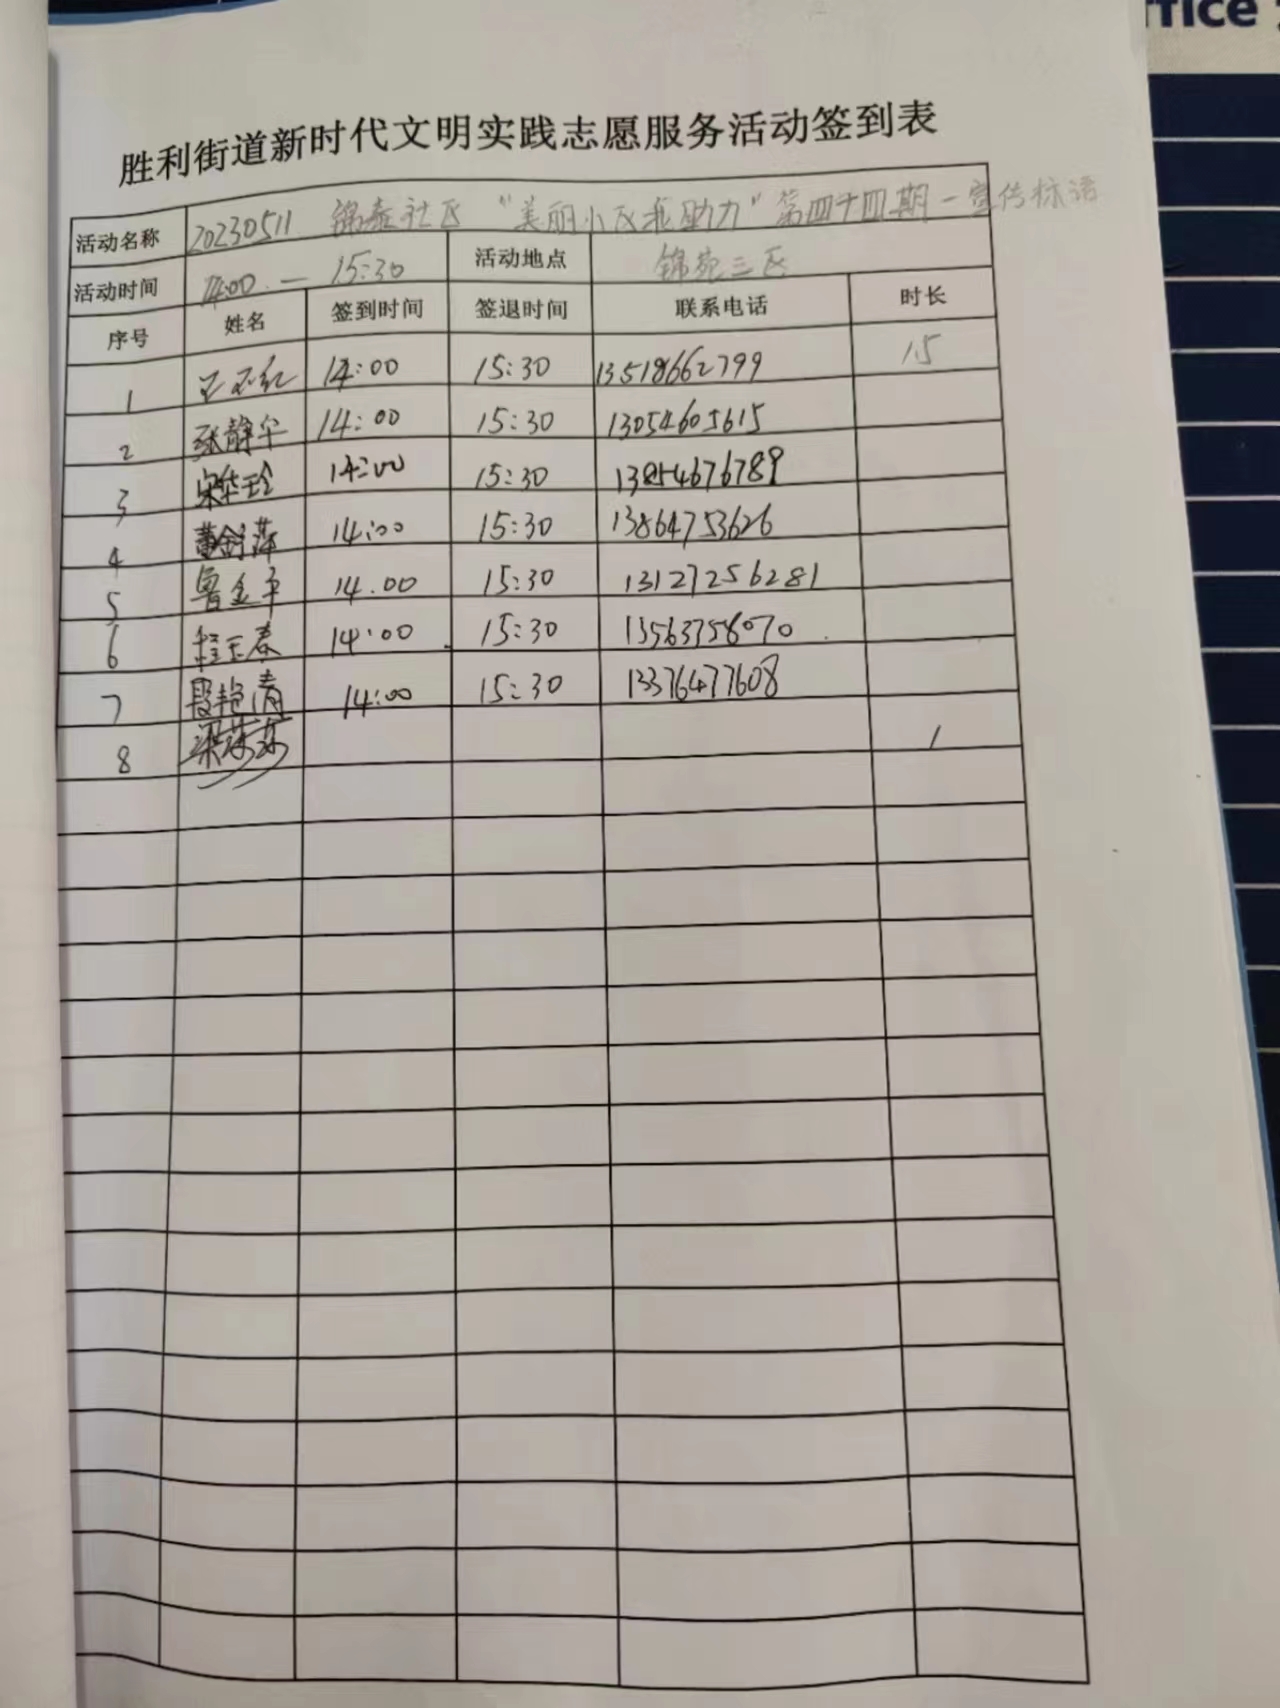 ffice
胜利街道新时代文明实践志愿服务活动签到表
活动名称 20230511 锦泰社区 "美丽小区我助力" 第四十四期-宣传标语
活动时间 14:00 — 15:30 活动地点 锦苑三区
序号 姓名 签到时间 签退时间 联系电话 时长
1 王玉红 14:00 15:30 13518662799 1.5
2 张静华 14:00 15:30 13054605615
3 宋华玲 14:00 15:30 13854676789
4 黄金萍 14:00 15:30 13864753626
5 鲁金平 14.00 15:30 13127256281
6 程玉春 14:00 15:30 13563758070
7 段艳清 14:00 15:30 13376477608
8 梁莎莎 1